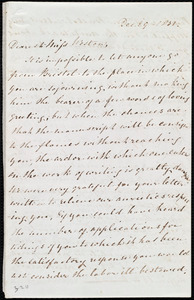 Dec 29
Dearest Miss Weston,
It is impossible to let anyone go
from Bristol to the place in which
you are sojourning, without making
him the bearer of a few words of loving
greeting, but when the chances are
that the manuscript will be consigned
to the flames without reaching
you, the ardor with which one enters
on the work of writing is greatly
were very grateful for your letter,
to relieve our anxieties
ing you, if you could have known
the number of applications for
tidings of you to which it has been
the satisfactory response you would
not consider the labor ill bestowed.